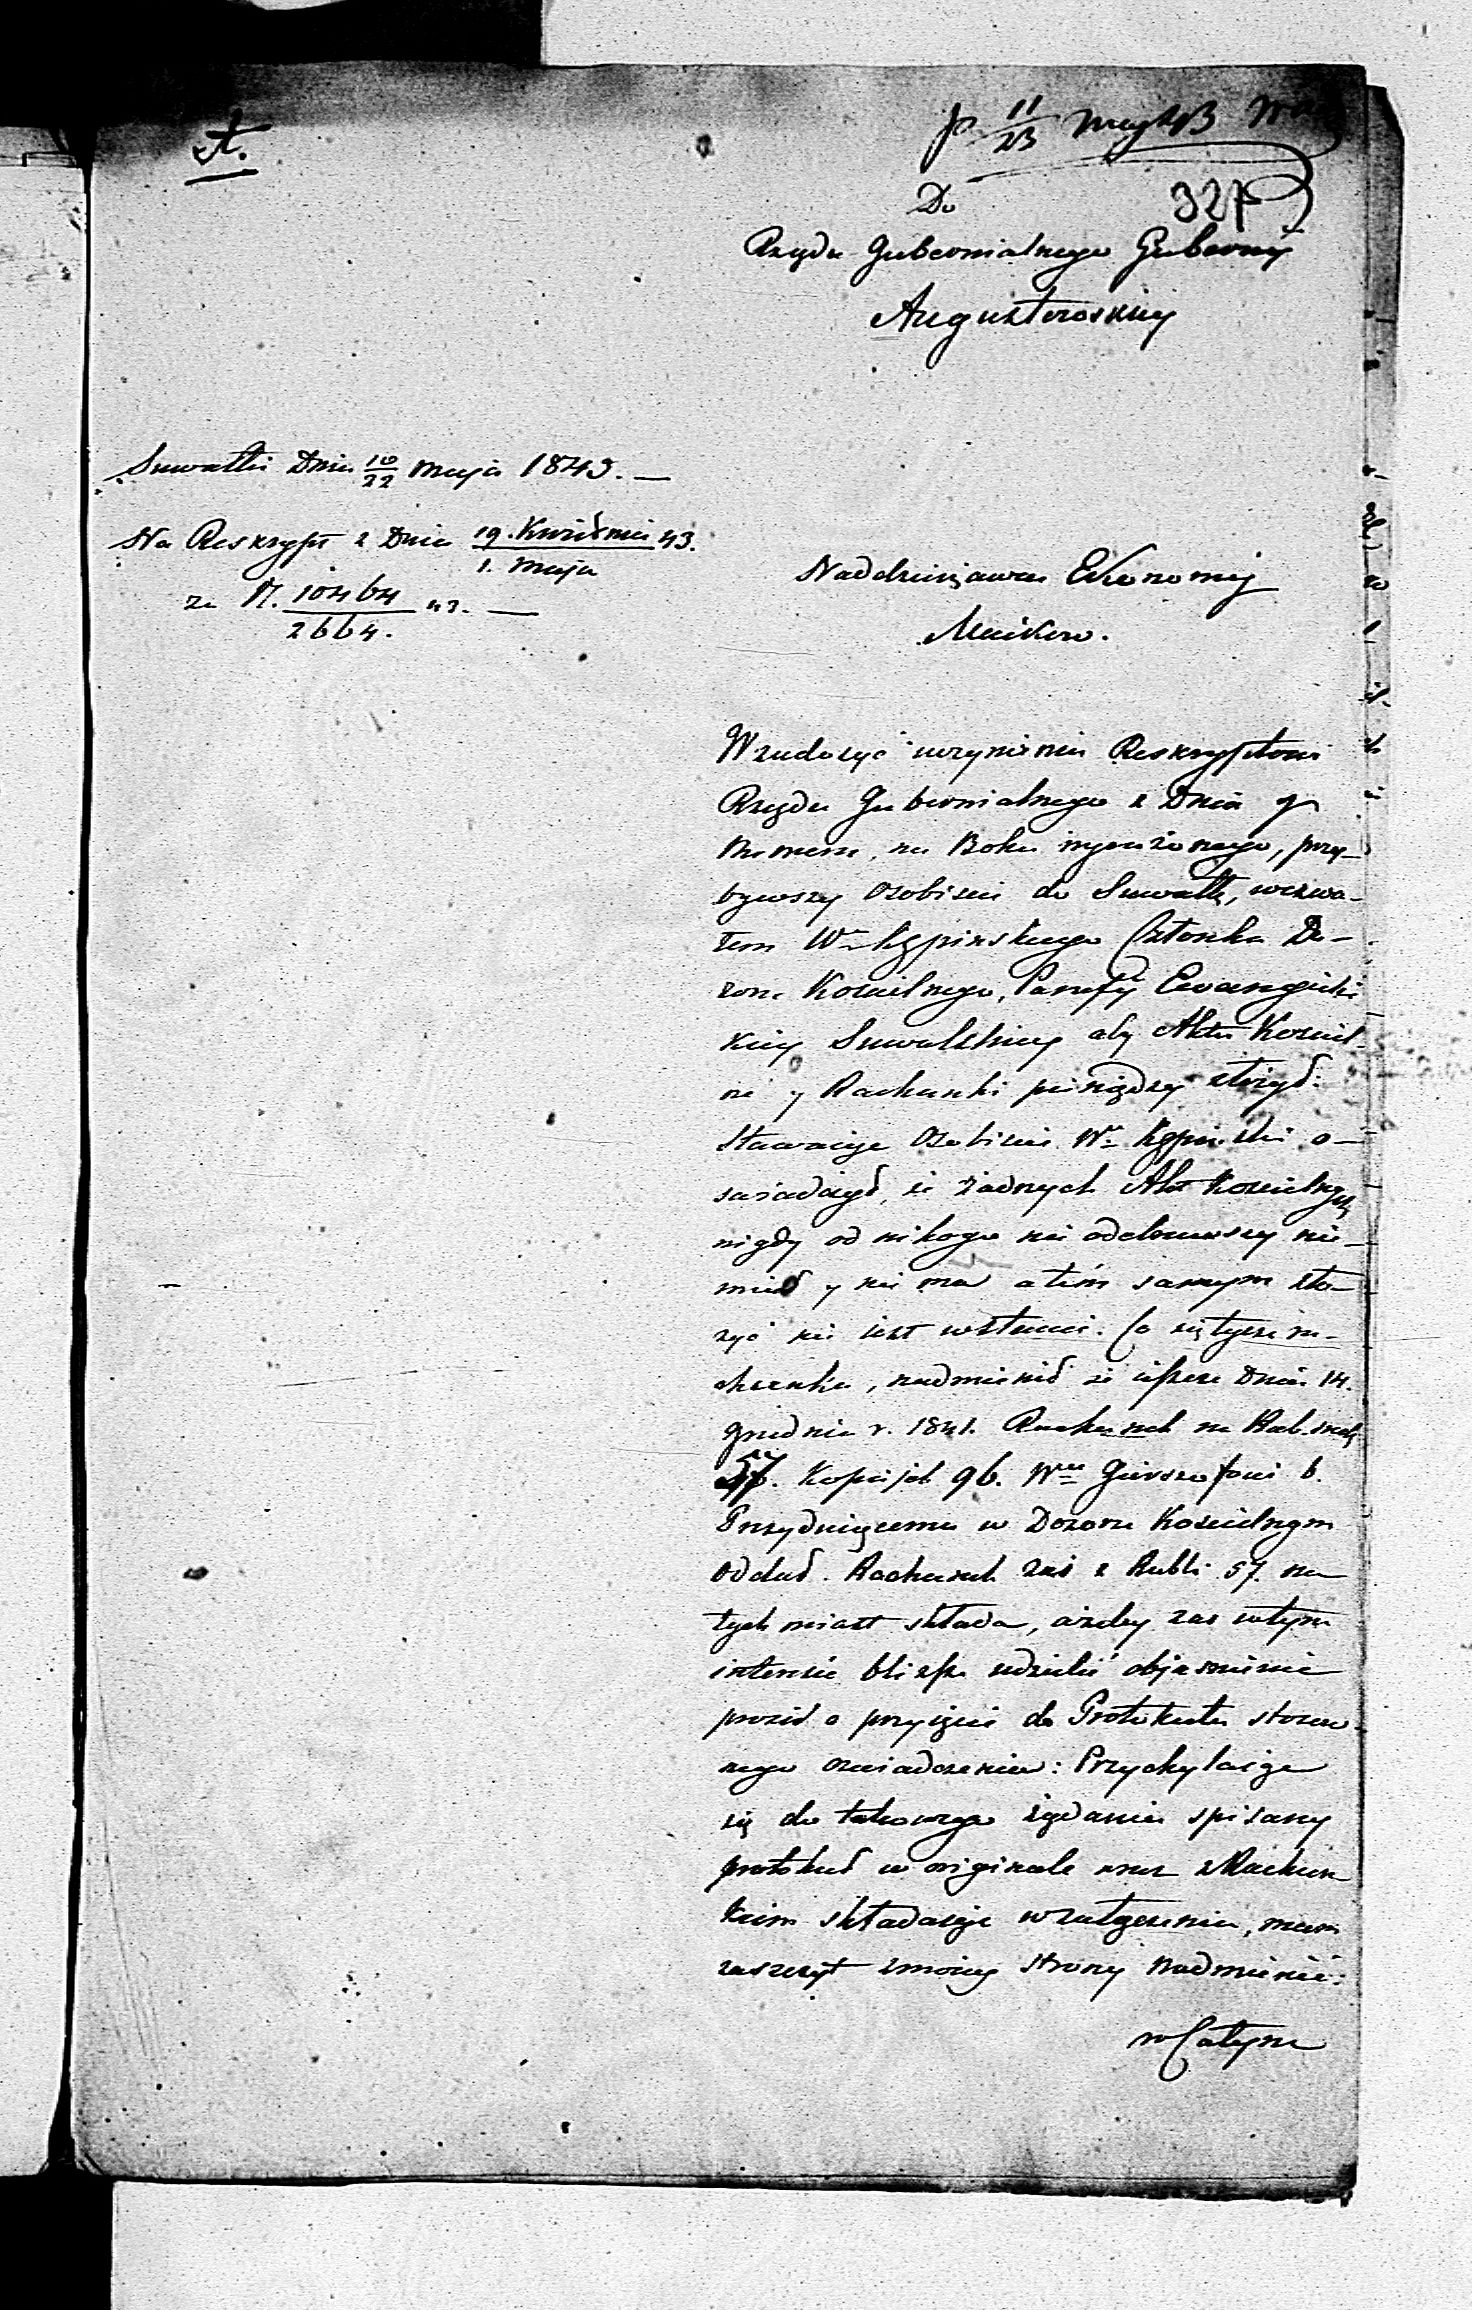 A.
p 11/23 May 43
327
Do
Rządu Gubernialnego Guberny
Augustowskiey
Suwałki Dnia 10/22 Maja 1843. —
Na Reskrypt z Dnia 19. Kwietnia/1. Maja 43.
za N. 10464/2664. 43. —
Naddzierżawca Ekonomij
Wzadosyć uczynieniu Reskryptowi
Rządu Gubernialnego z Dnia y
Numeru, na Boku wyrażonego, przy-
bywszy Osobiscie do Suwałk, wezwa-
łem W Kępinskiego Członka Do-
zoru Koscielnego, Parafij Ewangielic
kiey Suwalskiey aby Akta Kosciel-
ne y Rachunki pieniędzy złożył:
Stawaiąc Osobiscie W Kępinski o-
swiadczył, że żadnych Akt Koscielnych
nigdy od nikogo nie odebrawszy nie-
miał y nie ma a tém samym zło-
żyć nie iest wstanie. Co się tycze ra-
chunku, nadmienił że ieszcze Dnia 14.
grudnia r. 1841. Rachunek na Rub.
57. Kopiejek 96. b.
Prezyduiącemu w Dozorze Koscielnym
oddał. Rachunek zaś z Rubli 57. na
tychmiast składa, ażeby zas wtym
interesie bliższe udzielić objasnienie
prosił o przyięcie do Protokułu stosow-
nego oswiadczenia: Przychylaiąc
się do takowego żądania spisany
protokuł w originale wraz z Rachun
kiem składaiąc wzałączeniu, mam
zaszczyt zmoiey strony nadmienić:
w Całym